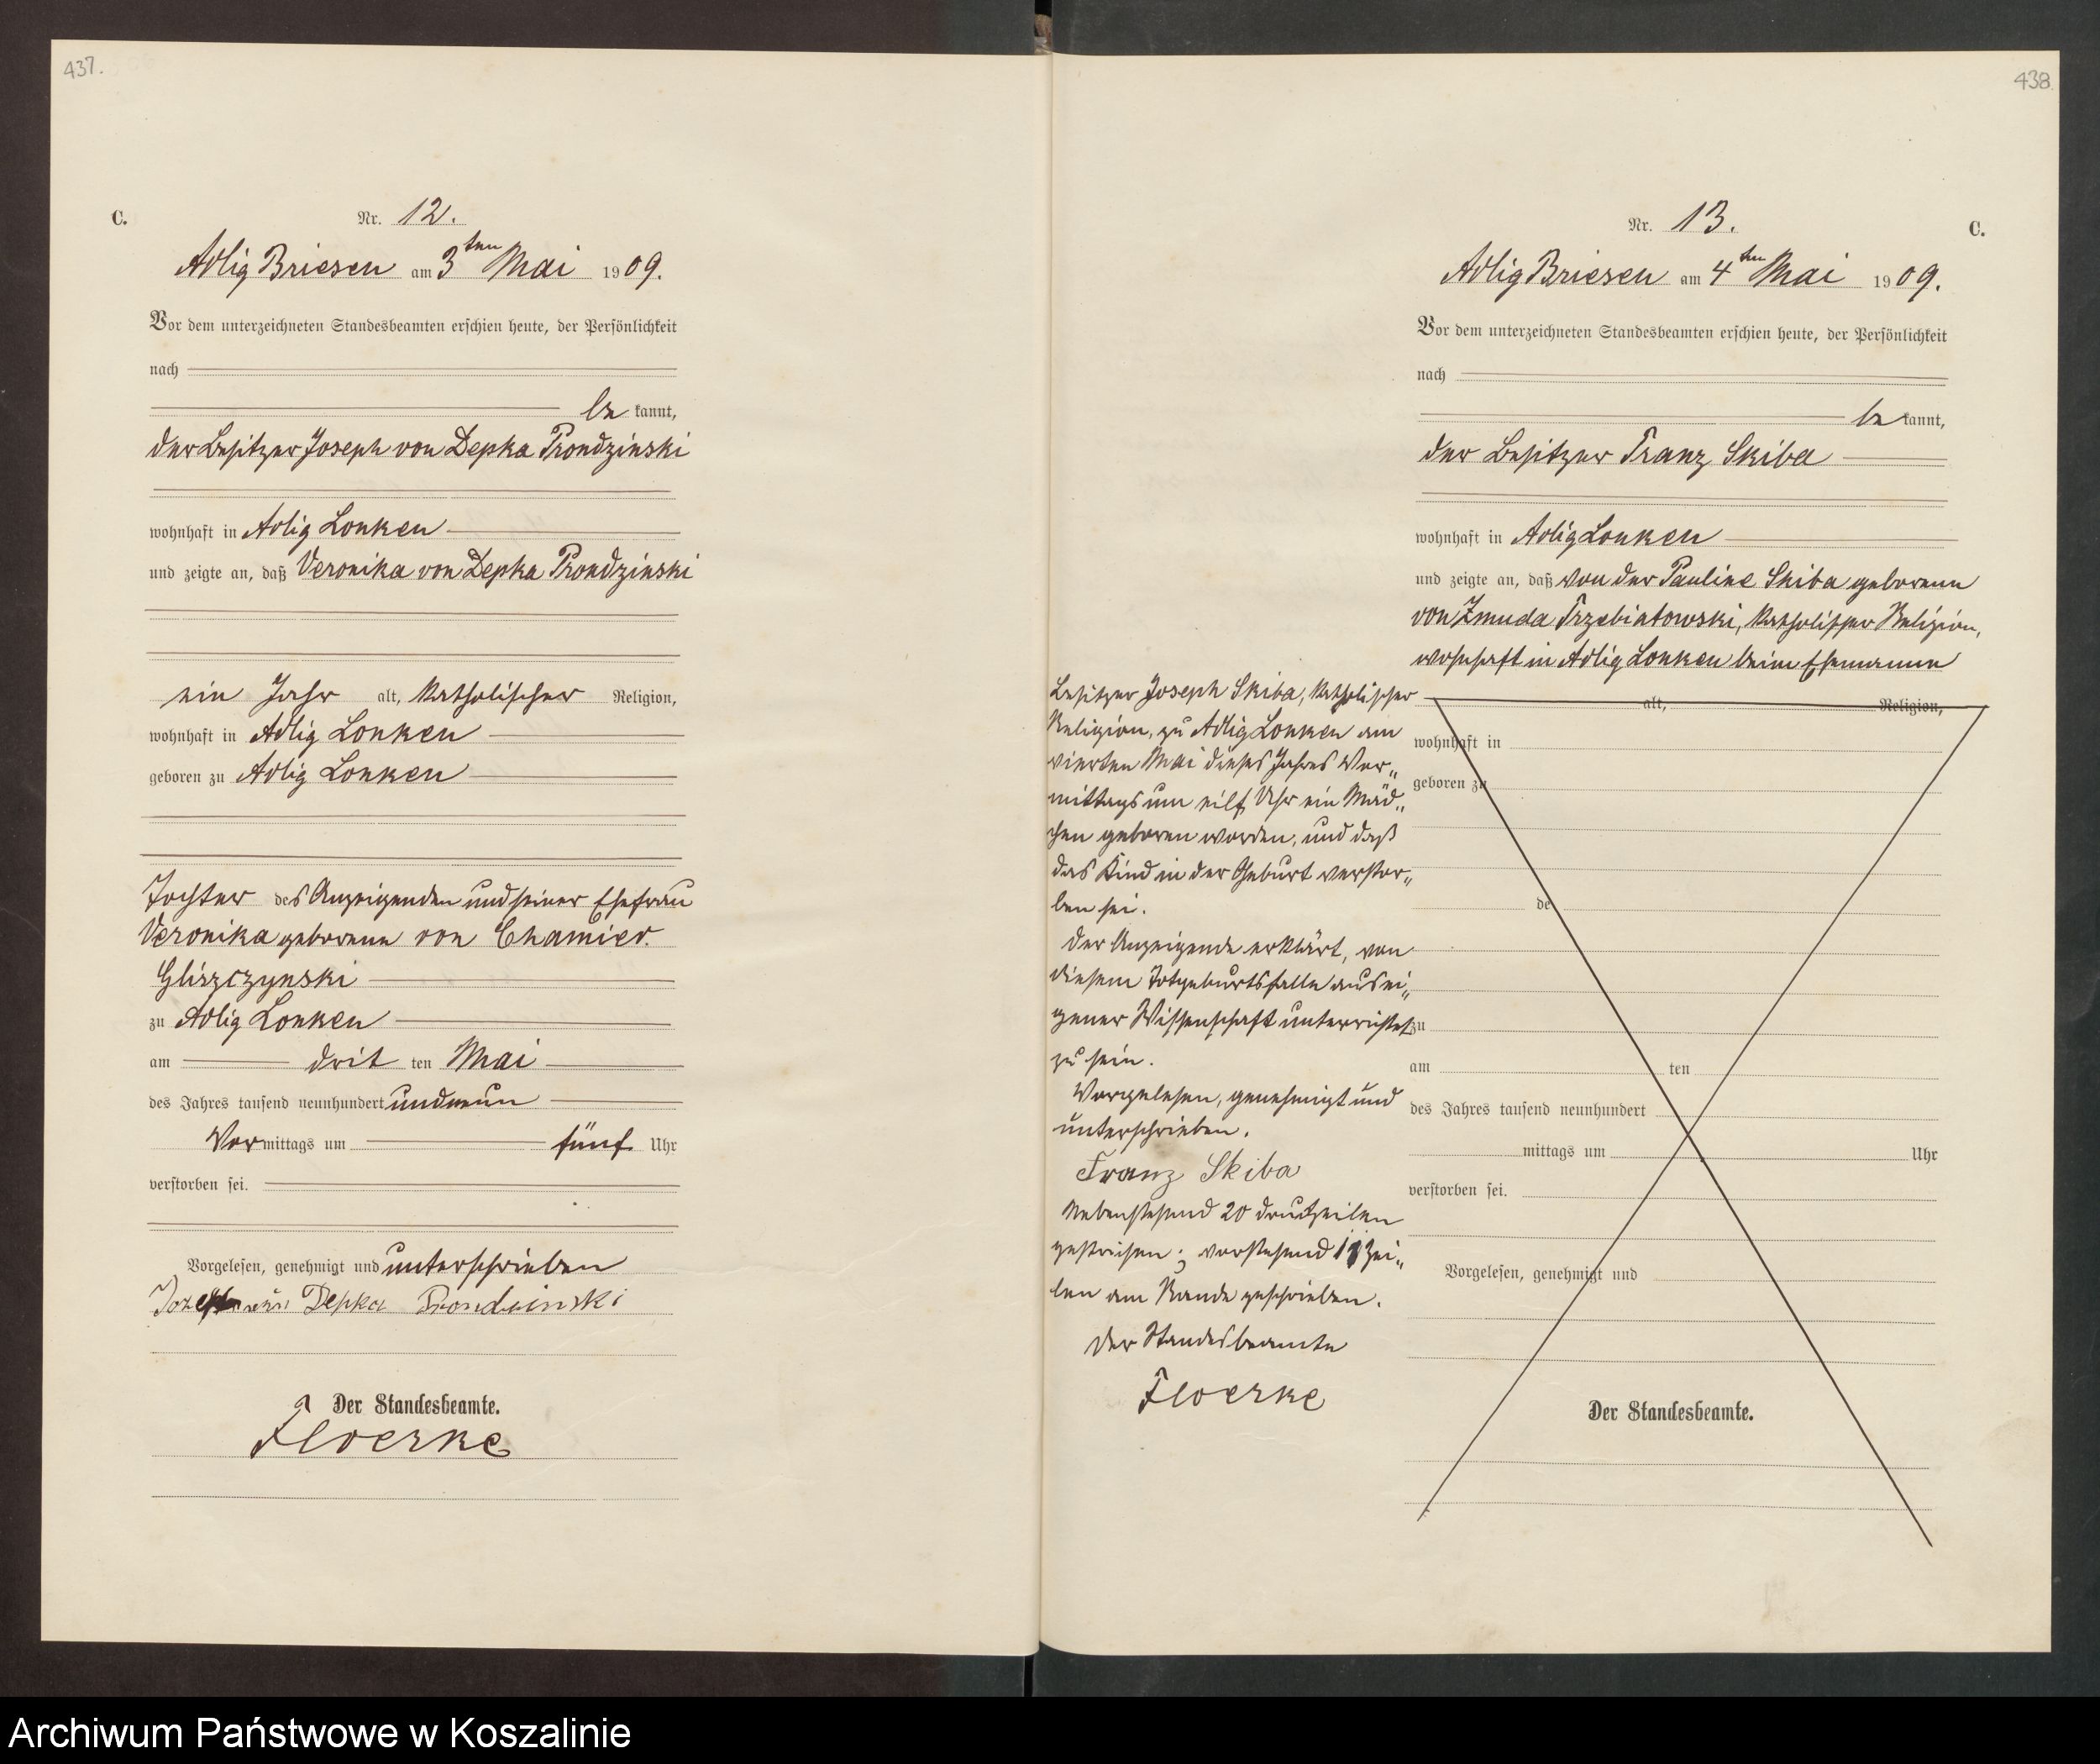 437.
C.
Nr. 12.
Adlig Briesen am 3ten Mai 1909.
Vor dem unterzeichneten Standesbeamten erschien heute, der Persönlichkeit
nach
be kannt,
der Besitzer Joseph von Depka Prondzinski
wohnhaft in Adlig Lonken
und zeigte an, daß Veronika von Depka Prondzinski
ein Jahr alt, katholischer Religion,
wohnhaft in Adlig Lonken
geboren zu Adlig Lonken
Tochter des Anzeigenden und seiner Ehefrau
Veronika geborenen von Chamier
Gliszczynski
zu Adlig Lonken
am drit ten Mai
des Jahres tausend neunhundert und neun
Vor mittags um fünf Uhr
verstorben sei.
Vorgelesen, genehmigt und unterschrieben
Depka Prondzinski
Der Standesbeamte.
Floerke
438
Nr. 13.
C.
Adlig Briesen am 4ten Mai 1909.
Vor dem unterzeichneten Standesbeamten erschien heute, der Persönlichkeit
nach
be kannt,
der Besitzer Franz Skiba
wohnhaft in Adlig Lonken
und zeigte an, daß von der Pauline Skiba geborenen
von Zmuda Trzebiatowski, katholischer Religion,
wohnhaft in Adlig Lonken beim Ehemanne
Besitzer Joseph Skiba, katholischer
Religion, zu Adlig Lonken am
vierten Mai dieses Jahres Vor„
mittags um eilf Uhr ein Mäd„
chen geboren worden, und daß
das Kind in der Geburt verstor„
ben sei.
Der Anzeigende erklärt, von
diesem Totgeburtsfalle aus ei„
gener Wissenschaft unterrichtet
zu sein.
Vorgelesen, genehmigt und
unterschrieben.
Franz Skiba
Nebenstehend 20 Druckzeilen
gestrichen; vorstehend Zei„
len am Rande geschrieben.
Der Standesbeamte
Floerke
alt, Religion,
wohnhaft in
geboren zu
de
zu
am ten
des Jahres tausend neunhundert
mittags um Uhr
verstorben sei.
Vorgelesen, genehmigt und
Der Standesbeamte.
Archiwum Państwowe w Koszalinie